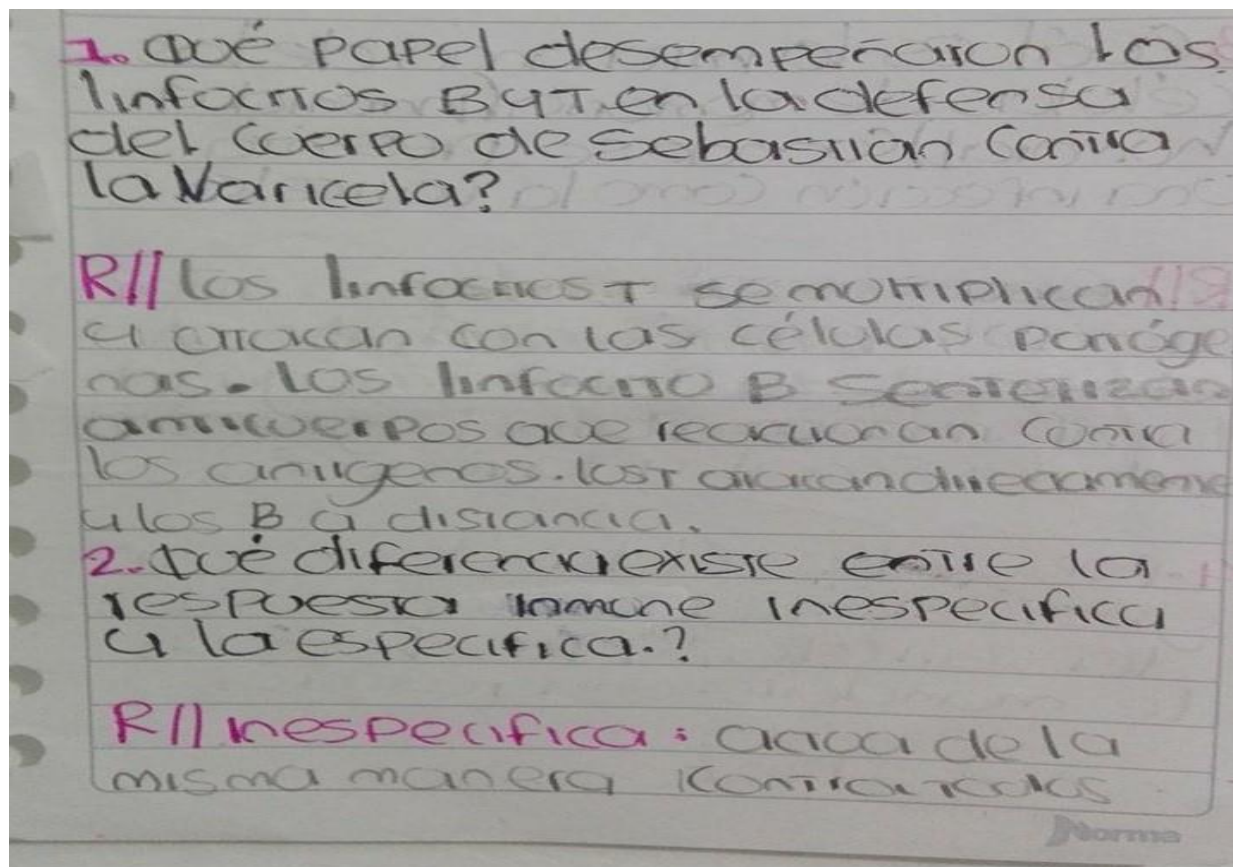 1. Qué papel desempeñaron los
linfocitos B y T en la defensa
del cuerpo de Sebastián contra
la Varicela?
R// los linfocitos T se multiplican
y atacan con las células patóge
nas. Los linfocito B
anticuerpos que reaccionan contra
los antigenos. los T atacan directamente
y los B a distancia.
2. Qué diferencia existe entre la
respuesta inmune inespecifica
y la especifica.?
R// inespecifica: actua de la
misma manera contra todos
Norma